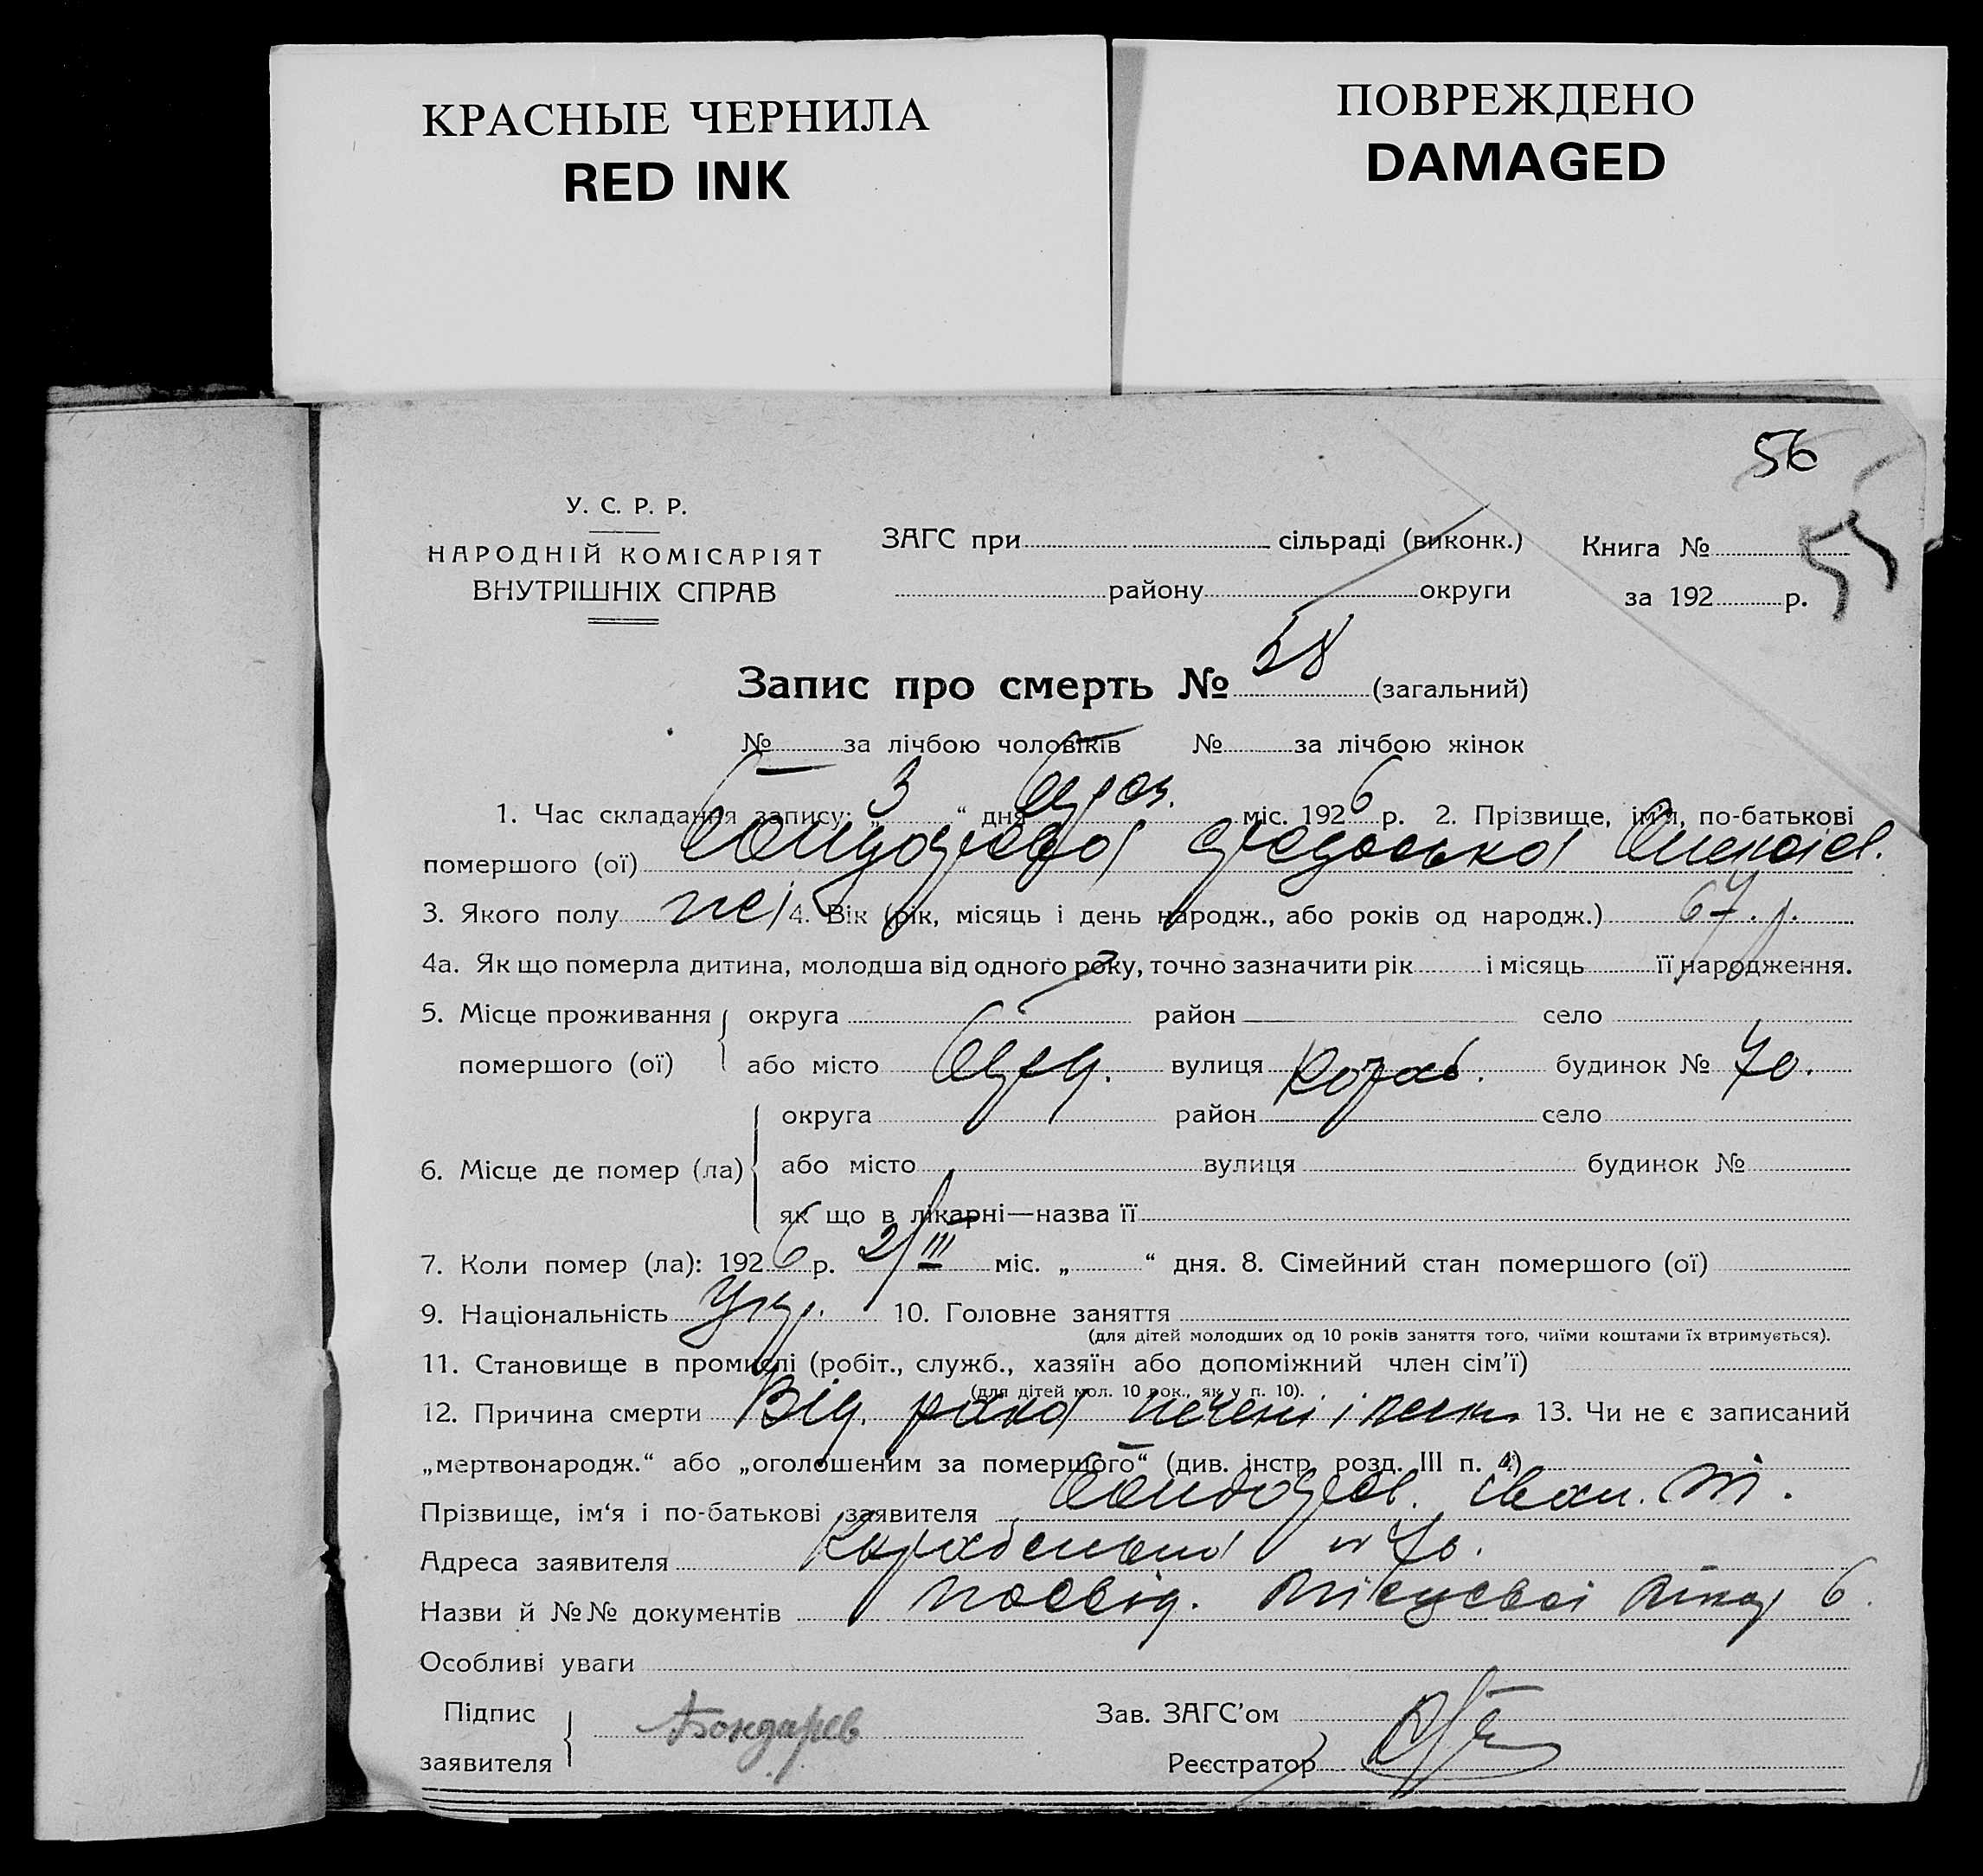 КРАСНЫЕ ЧЕРНИЛА
RED INK
ПОВРЕЖДЕНО
DAMAGED
56
55
У. С. Р. Р.
НАРОДНІЙ КОМІСАРІЯТ
ВНУТРІШНІХ СПРАВ
ЗАГС при сільраді (виконк.)
району округи
Книга №
за 192 р.
Запис про смерть № 58 (загальний)
№ за лічбою чоловіків № за лічбою жінок
1. Час складання запису: „3“ дня міс. 1926 р. 2. Прізвище, ім'я, по-батькові
помершого (ої)
3. Якого полу 4. Вік (рік, місяць і день народж., або років од народж.) 67 р.
4а. Як що померла дитина, молодша від одного року, точно зазначити рік і місяць її народження.
5. Місце проживання помершого (ої) { округа район село
або місто вулиця Кораб. будинок № 70.
6. Місце де помер (ла) { округа район село
або місто вулиця будинок №
як що в лікарні—назва її
7. Коли помер (ла): 1926 р. 2/III міс. „ “ дня. 8. Сімейний стан помершого (ої)
9. Національність Укр. 10. Головне заняття
(для дітей молодших од 10 років заняття того, чиїми коштами їх втримується).
11. Становище в промислі (робіт., служб., хазяїн або допоміжний член сім'ї)
(для дітей мол. 10 рок., як у п. 10).
12. Причина смерти Від. рака печені і 13. Чи не є записаний
„мертвонародж.“ або „оголошеним за помершого“ (див. інстр. розд. III п. 4)
Прізвище, ім'я і по-батькові заявителя Бондарев. Іван. М.
Адреса заявителя Корабельна № 70.
Назви й №№ документів посвід. Місцевої лікар 6.
Особливі уваги
Підпис заявителя } Бондарев
Зав. ЗАГС'ом
Реєстратор